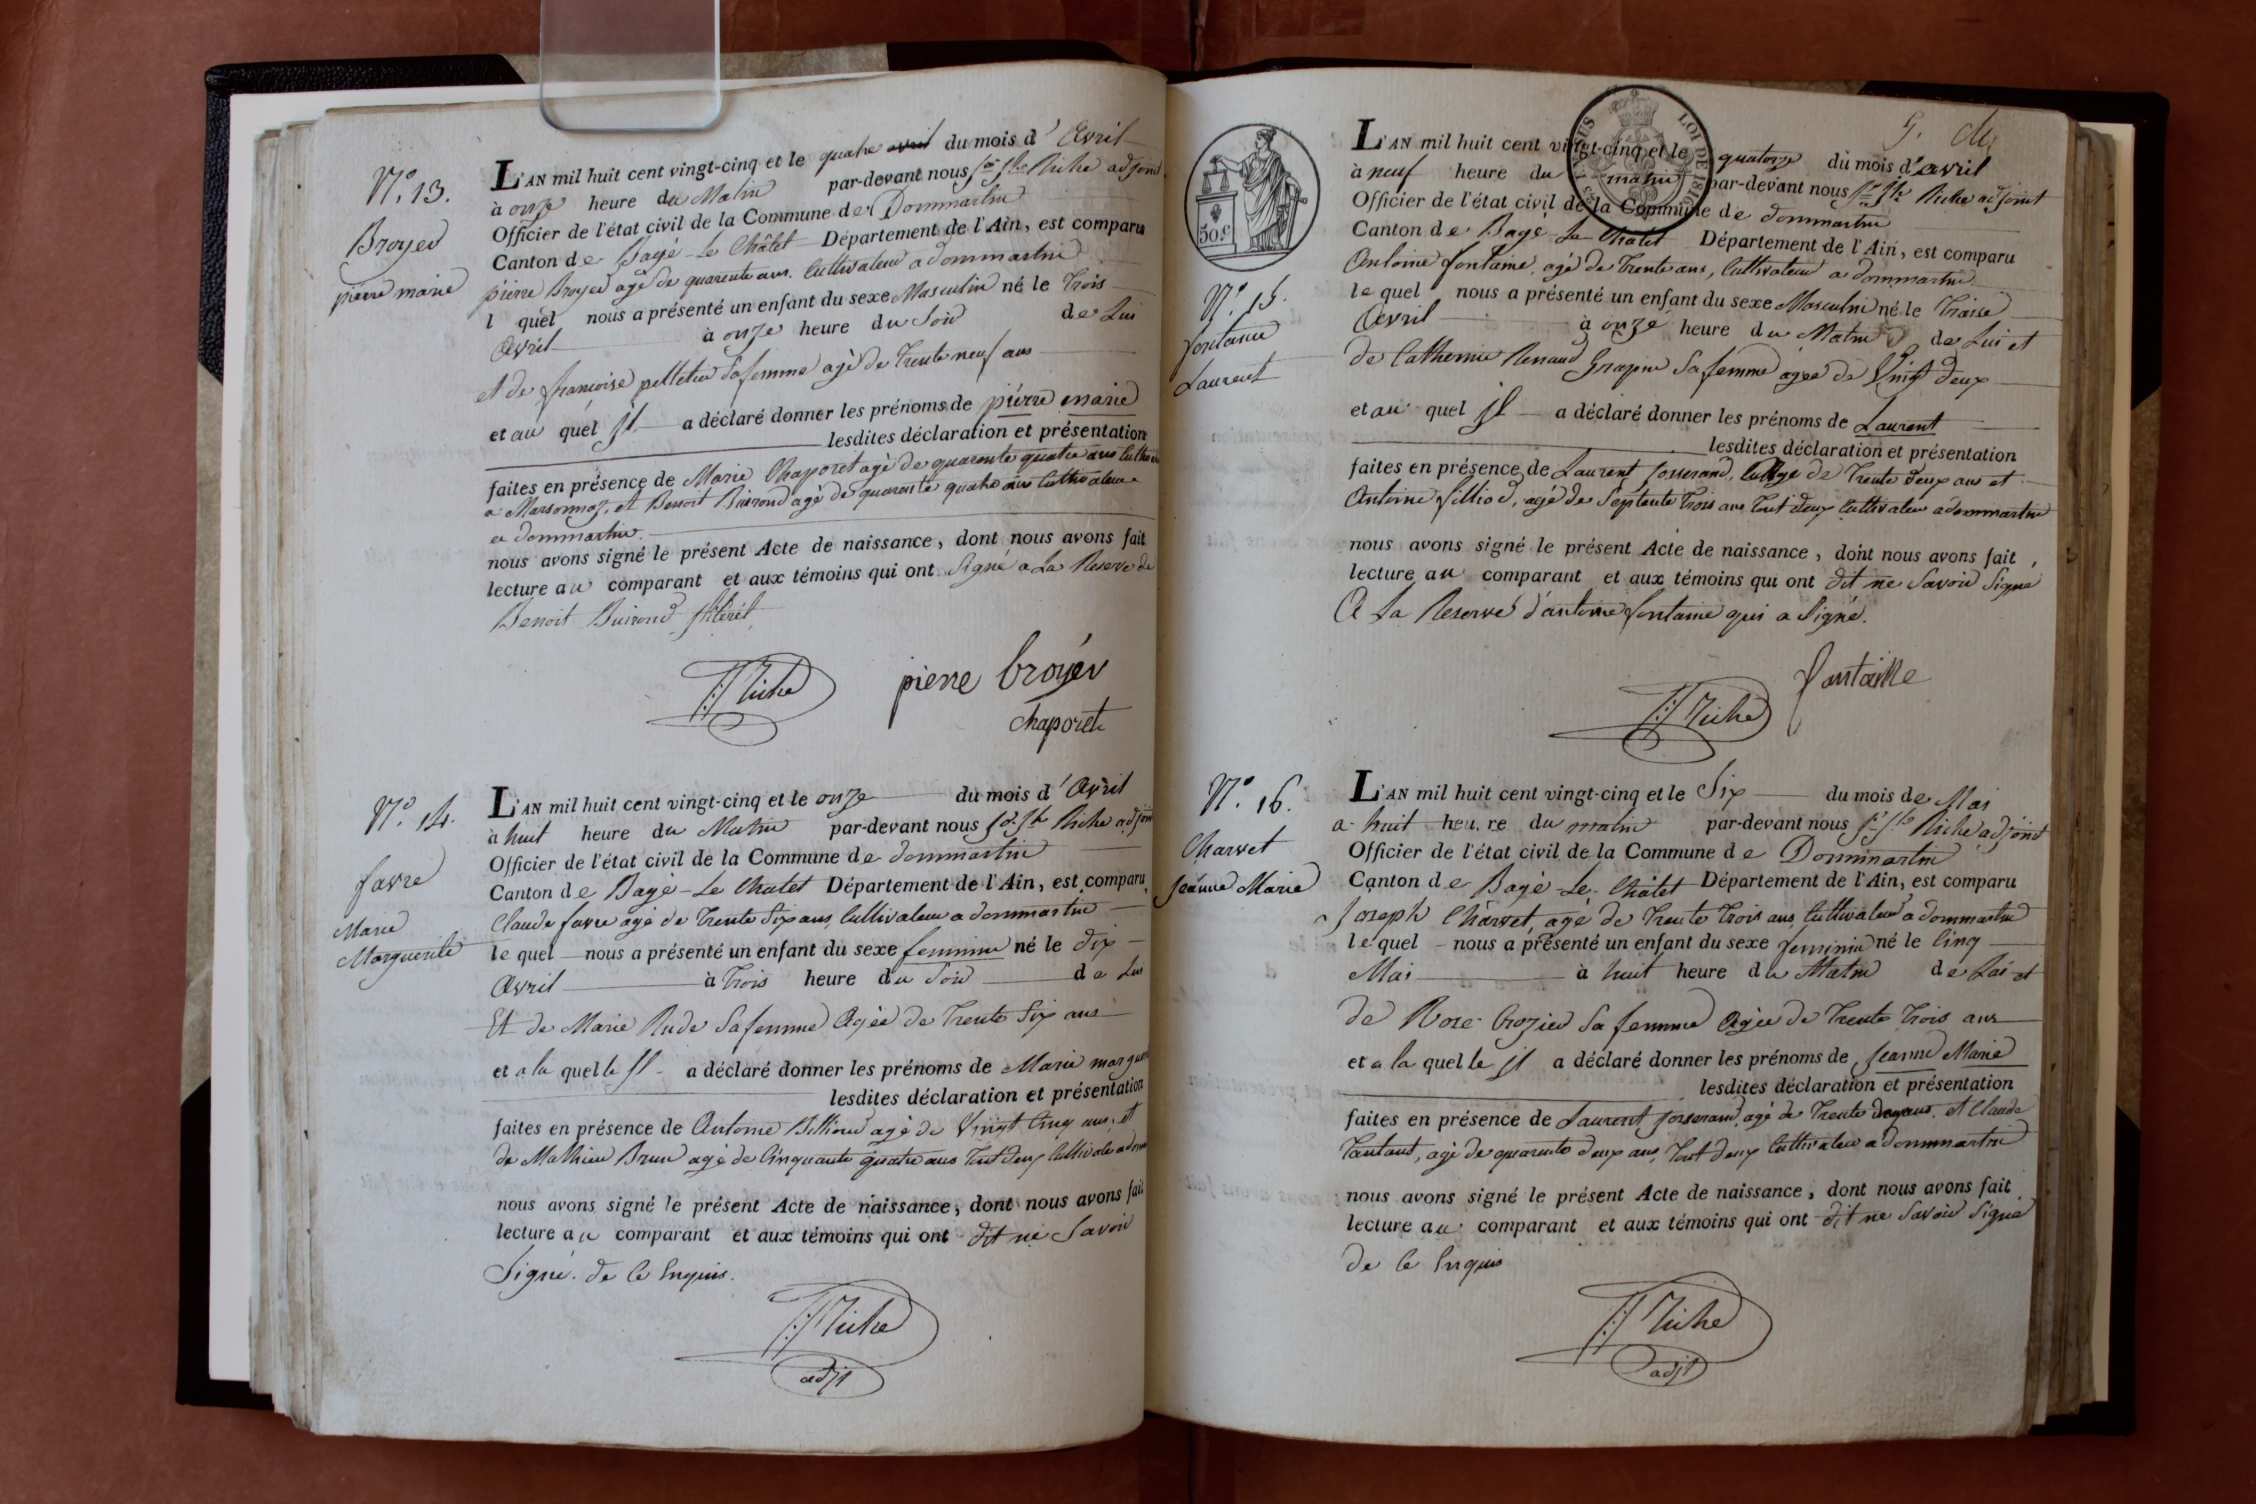 N.o 13.
Broyer
pierre marie
L'AN mil huit cent vingt-cinq et le quatre avril du mois d'Avril
à onze heure du Matin par-devant nous Riche adjoint
Officier de l'état civil de la Commune de Dommartin
Canton de Bagé-Le Châtel Département de l'Ain, est comparu
pierre Broyer agé de quarente ans. Cultivateur a dommartin
l quel nous a présenté un enfant du sexe Masculin né le trois
Avril à onze heure du Soir de Lui
et de françoise pelletier Sa femme agé de trente neuf ans
et au quel Il a déclaré donner les prénoms de pierre marie
lesdites déclaration et présentation
faites en présence de Marie Chaporet agé de quarente quatre ans
a Marsonnaz, et Benoit Buirond agé de quarente quatre ans Cultivateur
a dommartin.
nous avons signé le présent Acte de naissance, dont nous avons fait
lecture au comparant et aux témoins qui ont Signé a La Reserve de
Benoit Buirond Illeré
Riche
pierre broyer
Chaporet
N.o 14.
favre
Marie
Marguerite
L'AN mil huit cent vingt-cinq et le onze du mois d'Avril
à huit heure du Matin par-devant nous Riche adjoint
Officier de l'état civil de la Commune de dommartin
Canton de Bagé-Le Chatel Département de l'Ain, est comparu
Claude favre agé de trente Six ans, Cultivateur a dommartin
le quel nous a présenté un enfant du sexe feminin né le dix
Avril à trois heure du Soir de Lui
Et de Marie Rude Sa femme Agée de trente Six ans
et a la quelle Il a déclaré donner les prénoms de Marie margue
lesdites déclaration et présentation
faites en présence de Antoine agé de Vingt Cinq ans, et
de Mathieu Brun agé de Cinquante quatre ans tout deux
nous avons signé le présent Acte de naissance, dont nous avons fait
lecture au comparant et aux témoins qui ont dit ne Savoir
Signé. de Ce Enquis.
Riche
adjt
50.c
N.o 15.
fontaine
Laurent
L'AN mil huit cent vingt-cinq et le quatorze du mois d'avril
à neuf heure du matin par-devant nous Riche adjoint
Officier de l'état civil de la Commune de dommartin
Canton de Bagé-Le Chatel Département de l'Ain, est comparu
Antoine fontaine, agé de trente ans, Cultivateur a dommartin
le quel nous a présenté un enfant du sexe Masculin né le traise
Avril à onze heure du Matin de Lui et
de Catherine Renaud Sa femme agée de Vingt deux
et au quel Il a déclaré donner les prénoms de Laurent
lesdites déclaration et présentation
faites en présence de Laurent Josserand, de trente deux ans et
Antoine filliod, agé de Septente trois ans tout deux Cultivateur a dommartin
nous avons signé le présent Acte de naissance, dont nous avons fait,
lecture au comparant et aux témoins qui ont dit ne Savoir Signé
A La Reserve d'antoine fontaine qui a Signé.
Riche
fontaine
N.o 16.
Charvet
Jeanne Marie
L'AN mil huit cent vingt-cinq et le Six du mois de Mai
a huit heu.re du matin par-devant nous Riche adjoint
Officier de l'état civil de la Commune de Dommartin
Canton de Bagé-Le-Châtel Département de l'Ain, est comparu
Joseph Charvet, agé de trente trois ans Cultivateur a dommartin
le quel nous a présenté un enfant du sexe feminin né le Cinq
Mai à huit heure du Matin de Lui et
de Rose Crozier Sa femme Agée de trente trois ans
et a la quelle Il a déclaré donner les prénoms de Jeanne Marie
lesdites déclaration et présentation
faites en présence de Laurent Josserand, agé de trente deux ans. et Claude
Tantant, agé de quarente deux ans, tout deux Cultivateur a dommartin
nous avons signé le présent Acte de naissance, dont nous avons fait
lecture au comparant et aux témoins qui ont dit ne Savoir Signé
de Ce Enquis
Riche
adjt